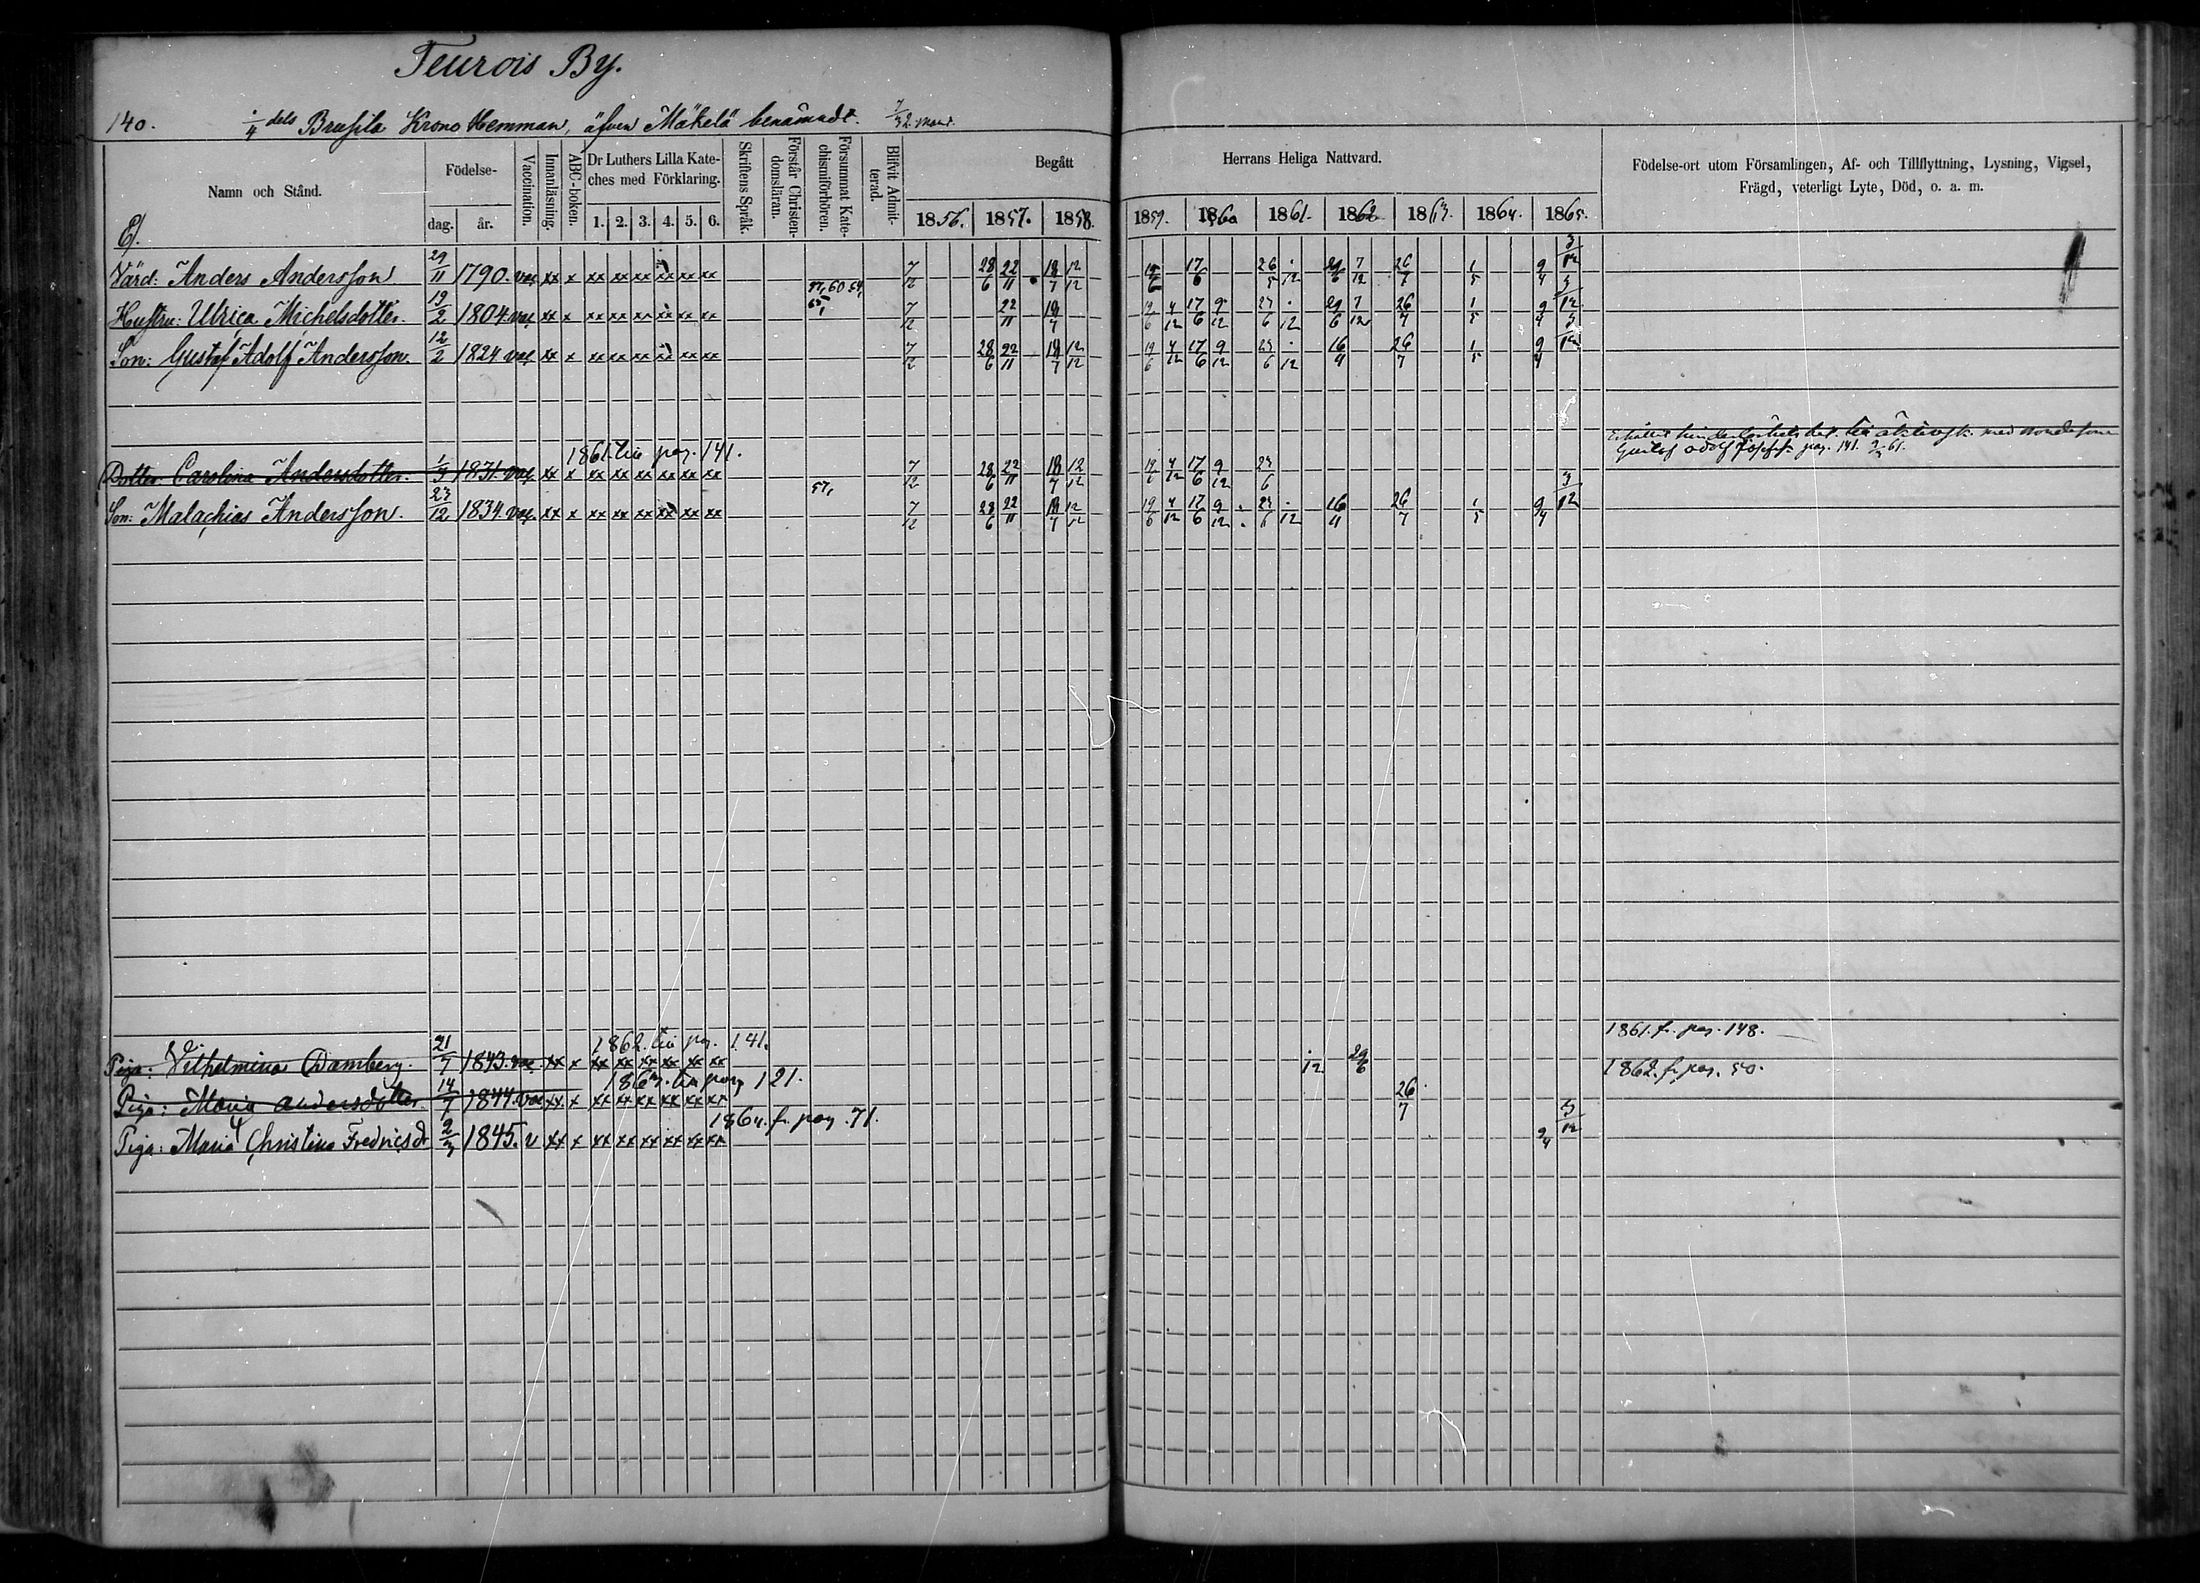 Teurois By.
140. 1/4 dels Brusila Krono Hemman, äfven Mäkelä benämndt. 7/32 mant.
Namn och Stånd. Födelse- dag. år. Vaccination. Innanläsning. ABC-boken. Dr Luthers Lilla Kate-ches med Förklaring. 1. 2. 3. 4. 5. 6. Skriftens Språk. Förstår Christen-domsläran. Försummat Kate-chismiförhören. Blifvit Admit-terad. Begått Herrans Heliga Nattvard. Födelse-ort utom Församlingen, Af- och Tillflyttning, Lysning, Vigsel, Frägd, veterligt Lyte, Död, o. a. m.
1856. 1857. 1858. 1859. 1860 1861. 1862 1863. 1864. 1865.
Värd: Anders Andersson 29/11 1790. vac xx x xx xx xx xx xx xx 57, 60 64, 7/12 28/6 22/11 18/7 12/12 19/6 17/6 26/5 1/12 29/6 7/12 26/7 1/5 9/4 3/12
Hustru: Ulrica Michelsdotter. 19/2 1804. vac xx x xx xx xx xx xx xx 65, 7/12 22/11 18/7 19/6 4/12 17/6 9/12 23/6 1/12 29/6 7/12 26/7 1/5 9/4 3/12
Son: Gustaf Adolf Andersson. 12/2 1824 vac xx x xx xx xx xx xx xx 7/12 28/6 22/11 18/7 12/12 19/6 4/12 17/6 9/12 23/6 1/12 16/4 26/7 1/5 9/4 3/12
1861. till pag. 141.
Dotter Carolina Andersdotter. 1831. vac xx x xx xx xx xx xx xx 7/12 28/6 22/11 18/7 12/12 19/6 4/12 17/6 9/12 23/6
Gustaf Adolf pag. 141. 61.
Son: Malachias Andersson. 23/12 1834. vac xx x xx xx xx xx xx xx 57, 7/12 28/6 22/11 18/7 12/12 19/6 4/12 17/6 9/12 23/6 1/12 16/4 26/7 1/5 9/4 3/12
1862. till pag. 141. 1861. f. pag. 148.
Piga: Vilhelmina Damberg. 21/7 1843. vac xx x xx xx xx xx xx xx 1/12 29/6
1863. till pag 121. 1862. f. pag. 50.
Piga: Maria Andersdotter. 14/7 1844. vac xx x xx xx xx xx xx xx 26/7
1864. f. pag. 71.
Piga: Maria Christina Fredricsdr 2/3 1845. v xx x xx xx xx xx xx xx 9/4 3/12